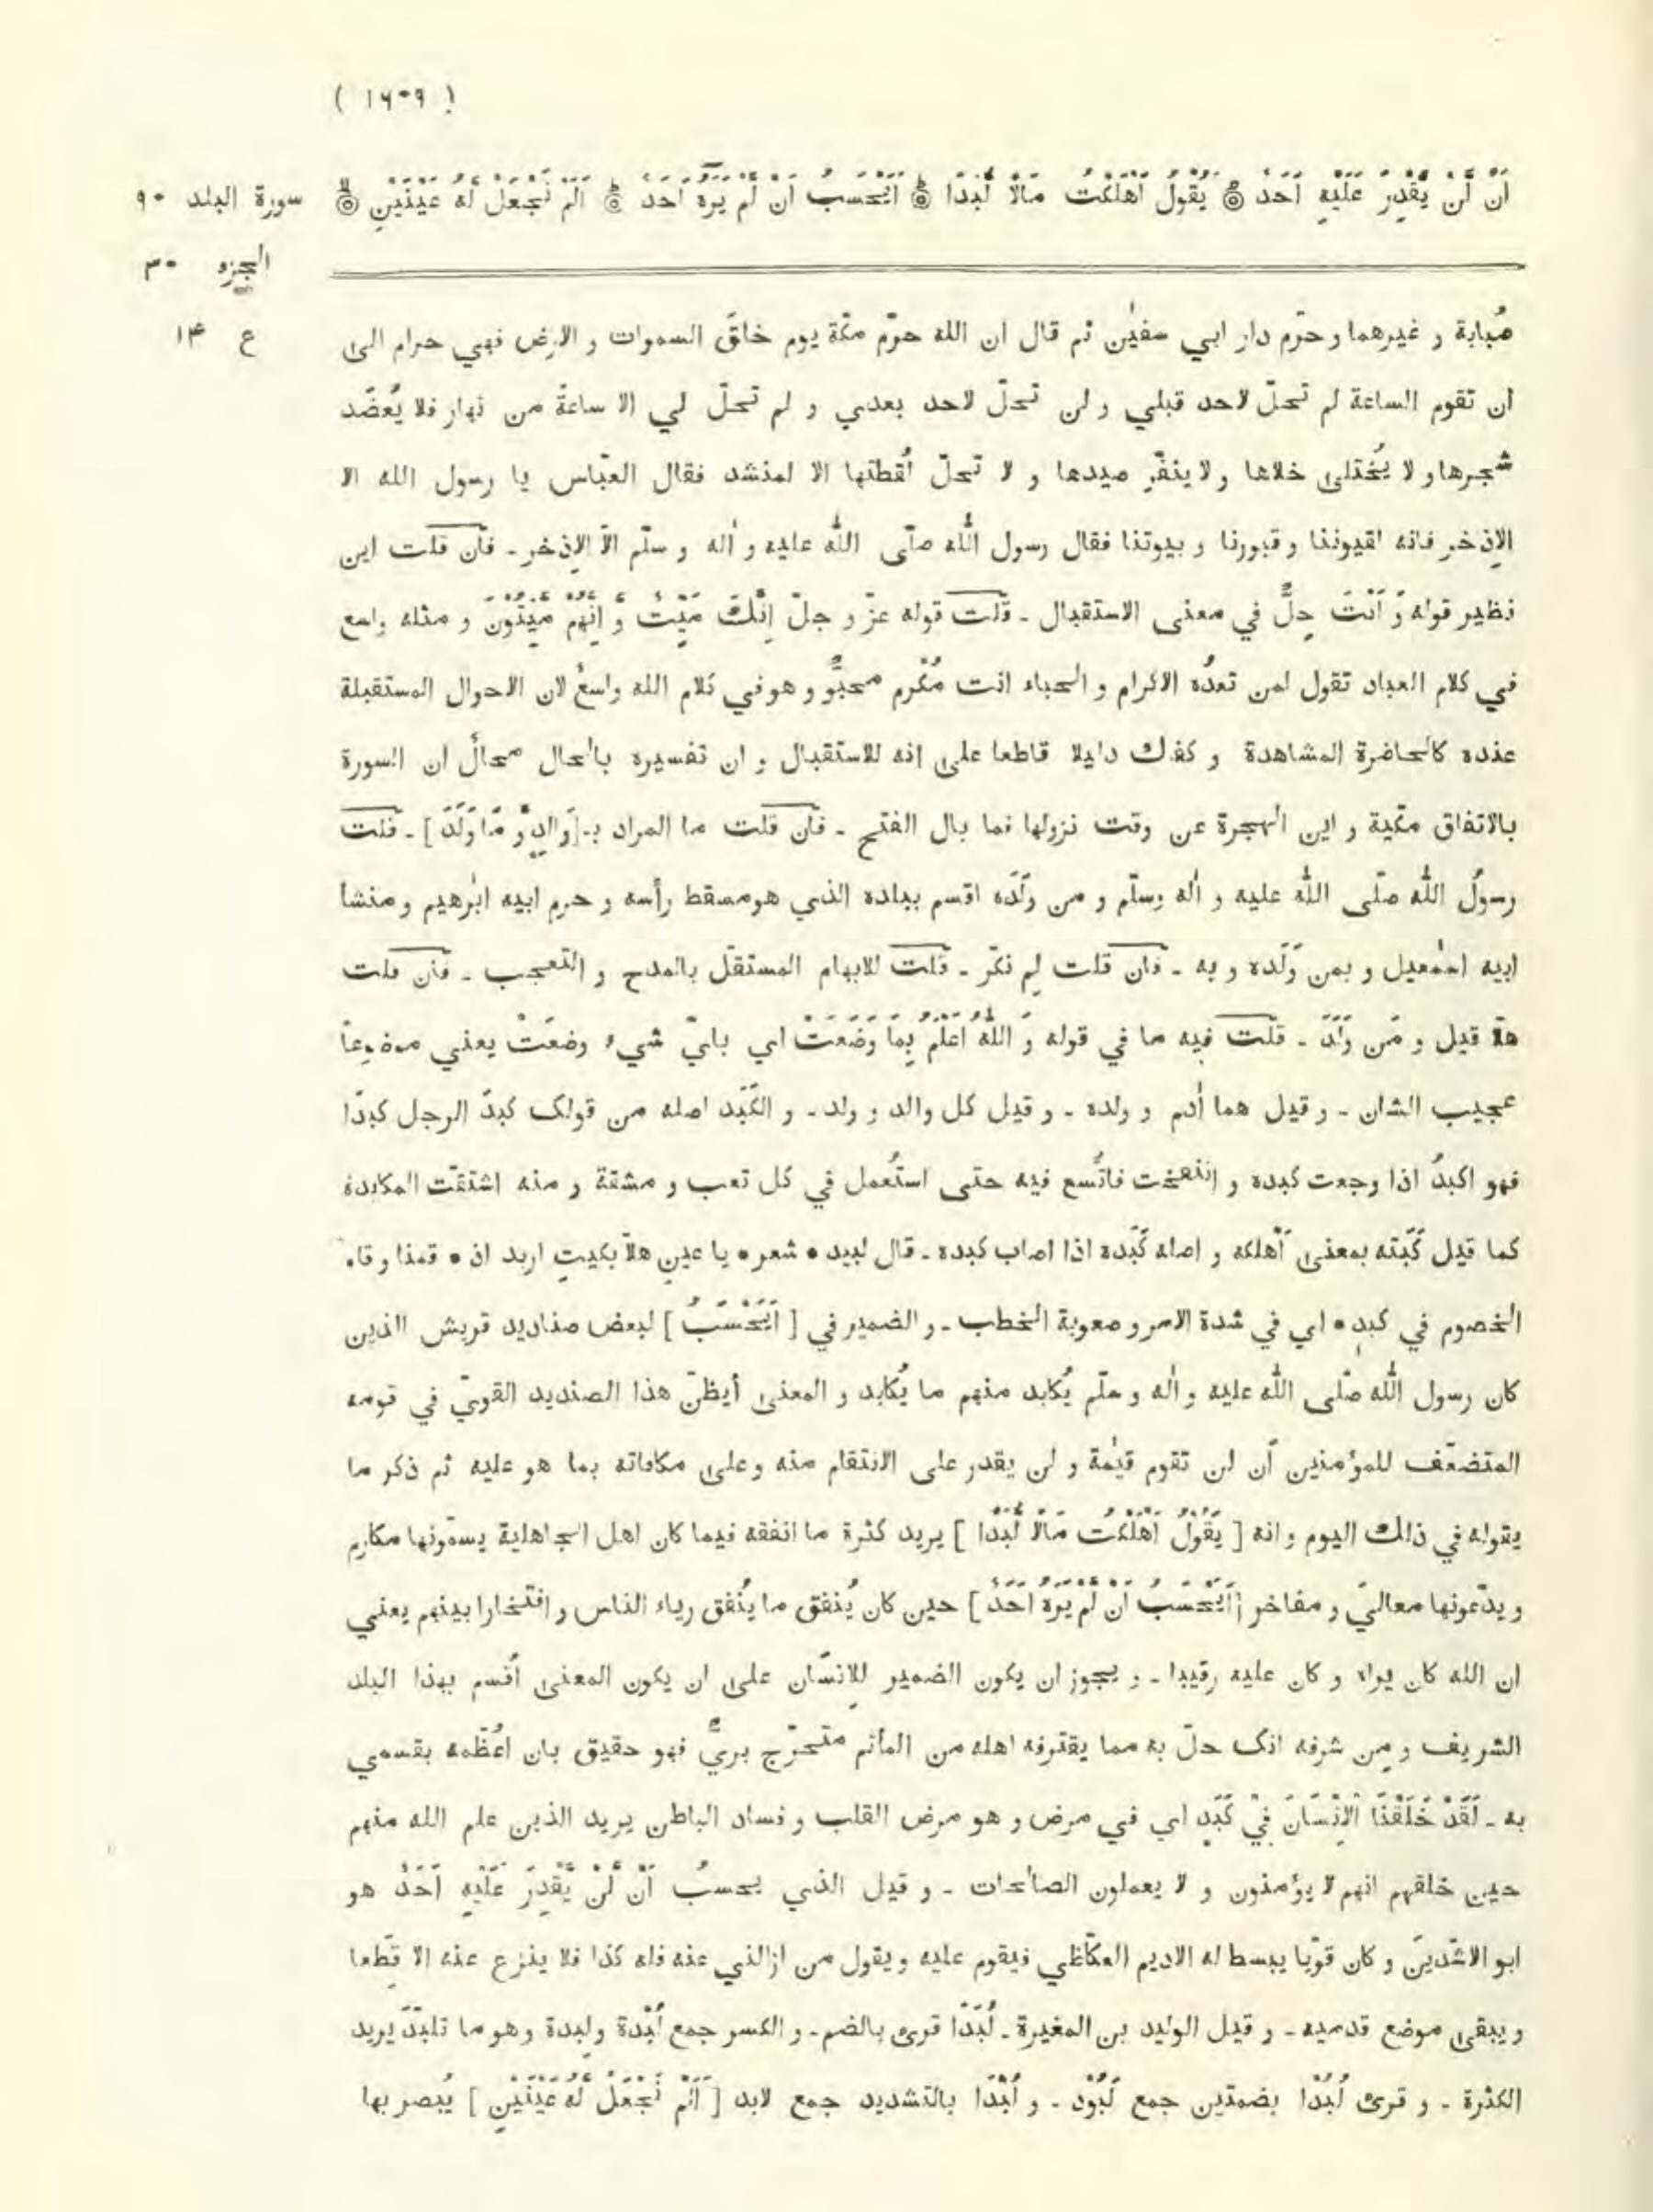 ( ١٦٠٩ )
اَنْ لَّنْ يَّقْدِرَ عَلَيْهِ اَحَدٌ ۝ يَقُوْلُ اَهْلَكْتُ مَالًا لُّبَدًا ۝ اَيَحْسَبُ اَنْ لَّمْ يَرَهٗ اَحَدٌ ۝ اَلَمْ نَجْعَلْ لَّهٗ عَيْنَيْنِ ۝
سورة البلد ٩٠
الجزء ٣٠
ع ١٤
صُبابة و غيرهما و حرّم دار ابي سفيٰن ثم قال ان الله حرّم مكّة يوم خلقَ السموات و الارض فهي حرام الى
ان تقوم الساعة لم تحلّ لاحد قبلي و لن تحلّ لاحد بعدي و لم تحلّ لي الا ساعةً من نهار فلا يُعضَد
شجرها و لا يُختلى خلاها و لا ينفّر صيدها و لا تحلّ لُقطتها الا لمنشد فقال العبّاس يا رسول الله الا
الاِذخر فانه لقيوننا و قبورنا و بيوتنا فقال رسول اللّٰه صلّى اللّٰه عليه و اٰله و سلّم الّا الاِذخر ـ فان قلت اين
نظير قوله وَ اَنْتَ حِلٌّ في معنى الاستقبال ـ قلت قوله عزّ و جلّ اِنَّكَ مَيِّتٌ وَّ اِنَّهُمْ مَّيِّتُوْنَ و مثله واسع
في كلام العباد تقول لمن تعدُه الاكرام و الحباء انت مُكْرم محبُوٌّ و هو في كلام الله واسعٌ لان الاحوال المستقبلة
عنده كالحاضرة المشاهدة و كفاك دليلا قاطعا على انه للاستقبال و ان تفسيره بالحال محالٌ ان السورة
بالاتفاق مكّية و اين الهجرة عن وقت نزولها فما بال الفتح ـ فان قلت ما المراد بـ[وَالِدٍ وَّ مَا وَلَدَ] ـ قلت
رسولُ اللّٰه صلّى اللّٰه عليه و اٰله وسلّم و من ولَدَه اقسم ببلده الذي هو مسقط رأسه و حرم ابيه ابرٰهيم و منشأ
ابيه اسمٰعيل و بمن وَلَده و به ـ فان قلت لِم نكّر ـ قلت للابهام المستقلّ بالمدح و التعجب ـ فان قلت
هلّا قيل و مَن وَلَدَ ـ قلت فيه ما في قوله وَ اللّٰهُ اَعْلَمُ بِمَا وَضَعَتْ اي بايّ شيء وضعَتْ يعني موضوعاً
عجيب الشان ـ و قيل هما اٰدم و ولده ـ و قيل كل والد و ولد ـ و الكَبَد اصله من قولك كبدَ الرجل كبدًا
فهو اكبدُ اذا وجعت كبده و انتفخت فاتُّسع فيه حتى استُعمل في كل تعب و مشقة و منه اشتقّت المكابدة
كما قيل كَبَته بمعنى اَهْلكه و اصله كَبَده اذا اصاب كبده ـ قال لبيد • شعر • يا عينِ هلّا بكيتِ اربد اذ • قمنا و قام
الخصوم في كبدٍ • اي في شدة الامر و صعوبة الخطب ـ و الضمير في [ اَيَحْسَبُ ] لبعض صناديد قريش الذين
كان رسول اللّٰه صلّى اللّٰه عليه و اٰله و سلّم يُكابد منهم ما يُكابد و المعنى أيظنّ هذا الصنديد القويّ في قومه
المتضعّف للمؤمنين اَن لن تقوم قيٰمة و لن يقدر على الانتقام منه و على مكافاته بما هو عليه ثم ذكر ما
يقوله في ذلك اليوم و انه [ يَقُوْلُ اَهْلَكْتُ مَالًا لُّبَدًا ] يريد كثرة ما انفقه فيما كان اهل الجاهلية يسمّونها مكارم
و يدّعونها معاليَ و مفاخر [اَيَحْسَبُ اَنْ لَّمْ يَرَهٗ اَحَدٌ ] حين كان يُنفق ما يُنفق رياء الناس و افتخارا بينهم يعني
ان الله كان يراه و كان عليه رقيبا ـ و يجوز ان يكون الضمير للاِنسان على ان يكون المعنى اُقسم بهذا البلد
الشريف و مِن شرفه انك حلّ به مما يقترفه اهله من المآثم متحرّج بريٌّ فهو حقيق بان اعُظّمه بقسمي
به ـ لَقَدْ خَلَقْنَا الْاِنْسَانَ فِيْ كَبَدٍ اي في مرض و هو مرض القلب و فساد الباطن يريد الذين علم الله منهم
حين خلقهم انهم لا يؤمنون و لا يعملون الصالحات ـ و قيل الذي يحسبُ اَنْ لَّنْ يَّقْدِرَ عَلَيْهِ اَحَدٌ هو
ابو الاشّدينَ و كان قويّا يبسط له الاديم العكّاظي فيقوم عليه و يقول من ازالني عنه فله كذا فلا ينزع عنه الا قِطَعا
و يبقى موضع قدميه ـ و قيل الوليد بن المغيرة ـ لُبَدًا قرئ بالضم ـ و الكسر جمع لُبْدة و لِبدة و هو ما تلبّدَ يريد
الكثرة ـ و قرئ لُبُدًا بضمتين جمع لَبُوْد ـ و لُبَّدًا بالتشديد جمع لابد [ اَلَمْ نَجْعَلْ لَّهٗ عَيْنَيْنِ ] يُبصر بها